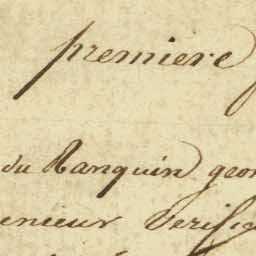 premiere
du Ranquin geom
enieur Verific